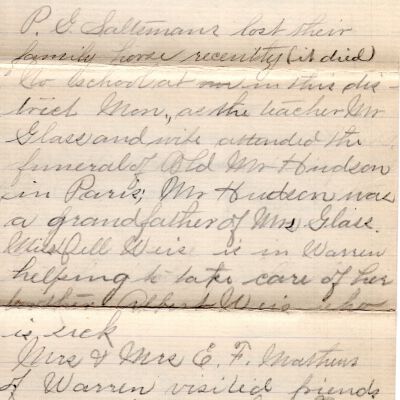 P. G. Saltsmans lost their
family horse recently (it died)
No school at in this dis-
trict Mon., as the teacher Mr
Glass and wife attended the
funeral of Old Mr Hudson
in Paris; Mr Hudson was
a grandfather of Mrs Glass.
Miss Dell Weis is in Warren
helping to take care of her
brother Albert Weis who
is sick
Mrs & Mrs E. F. Mathews
of Warren visited friends